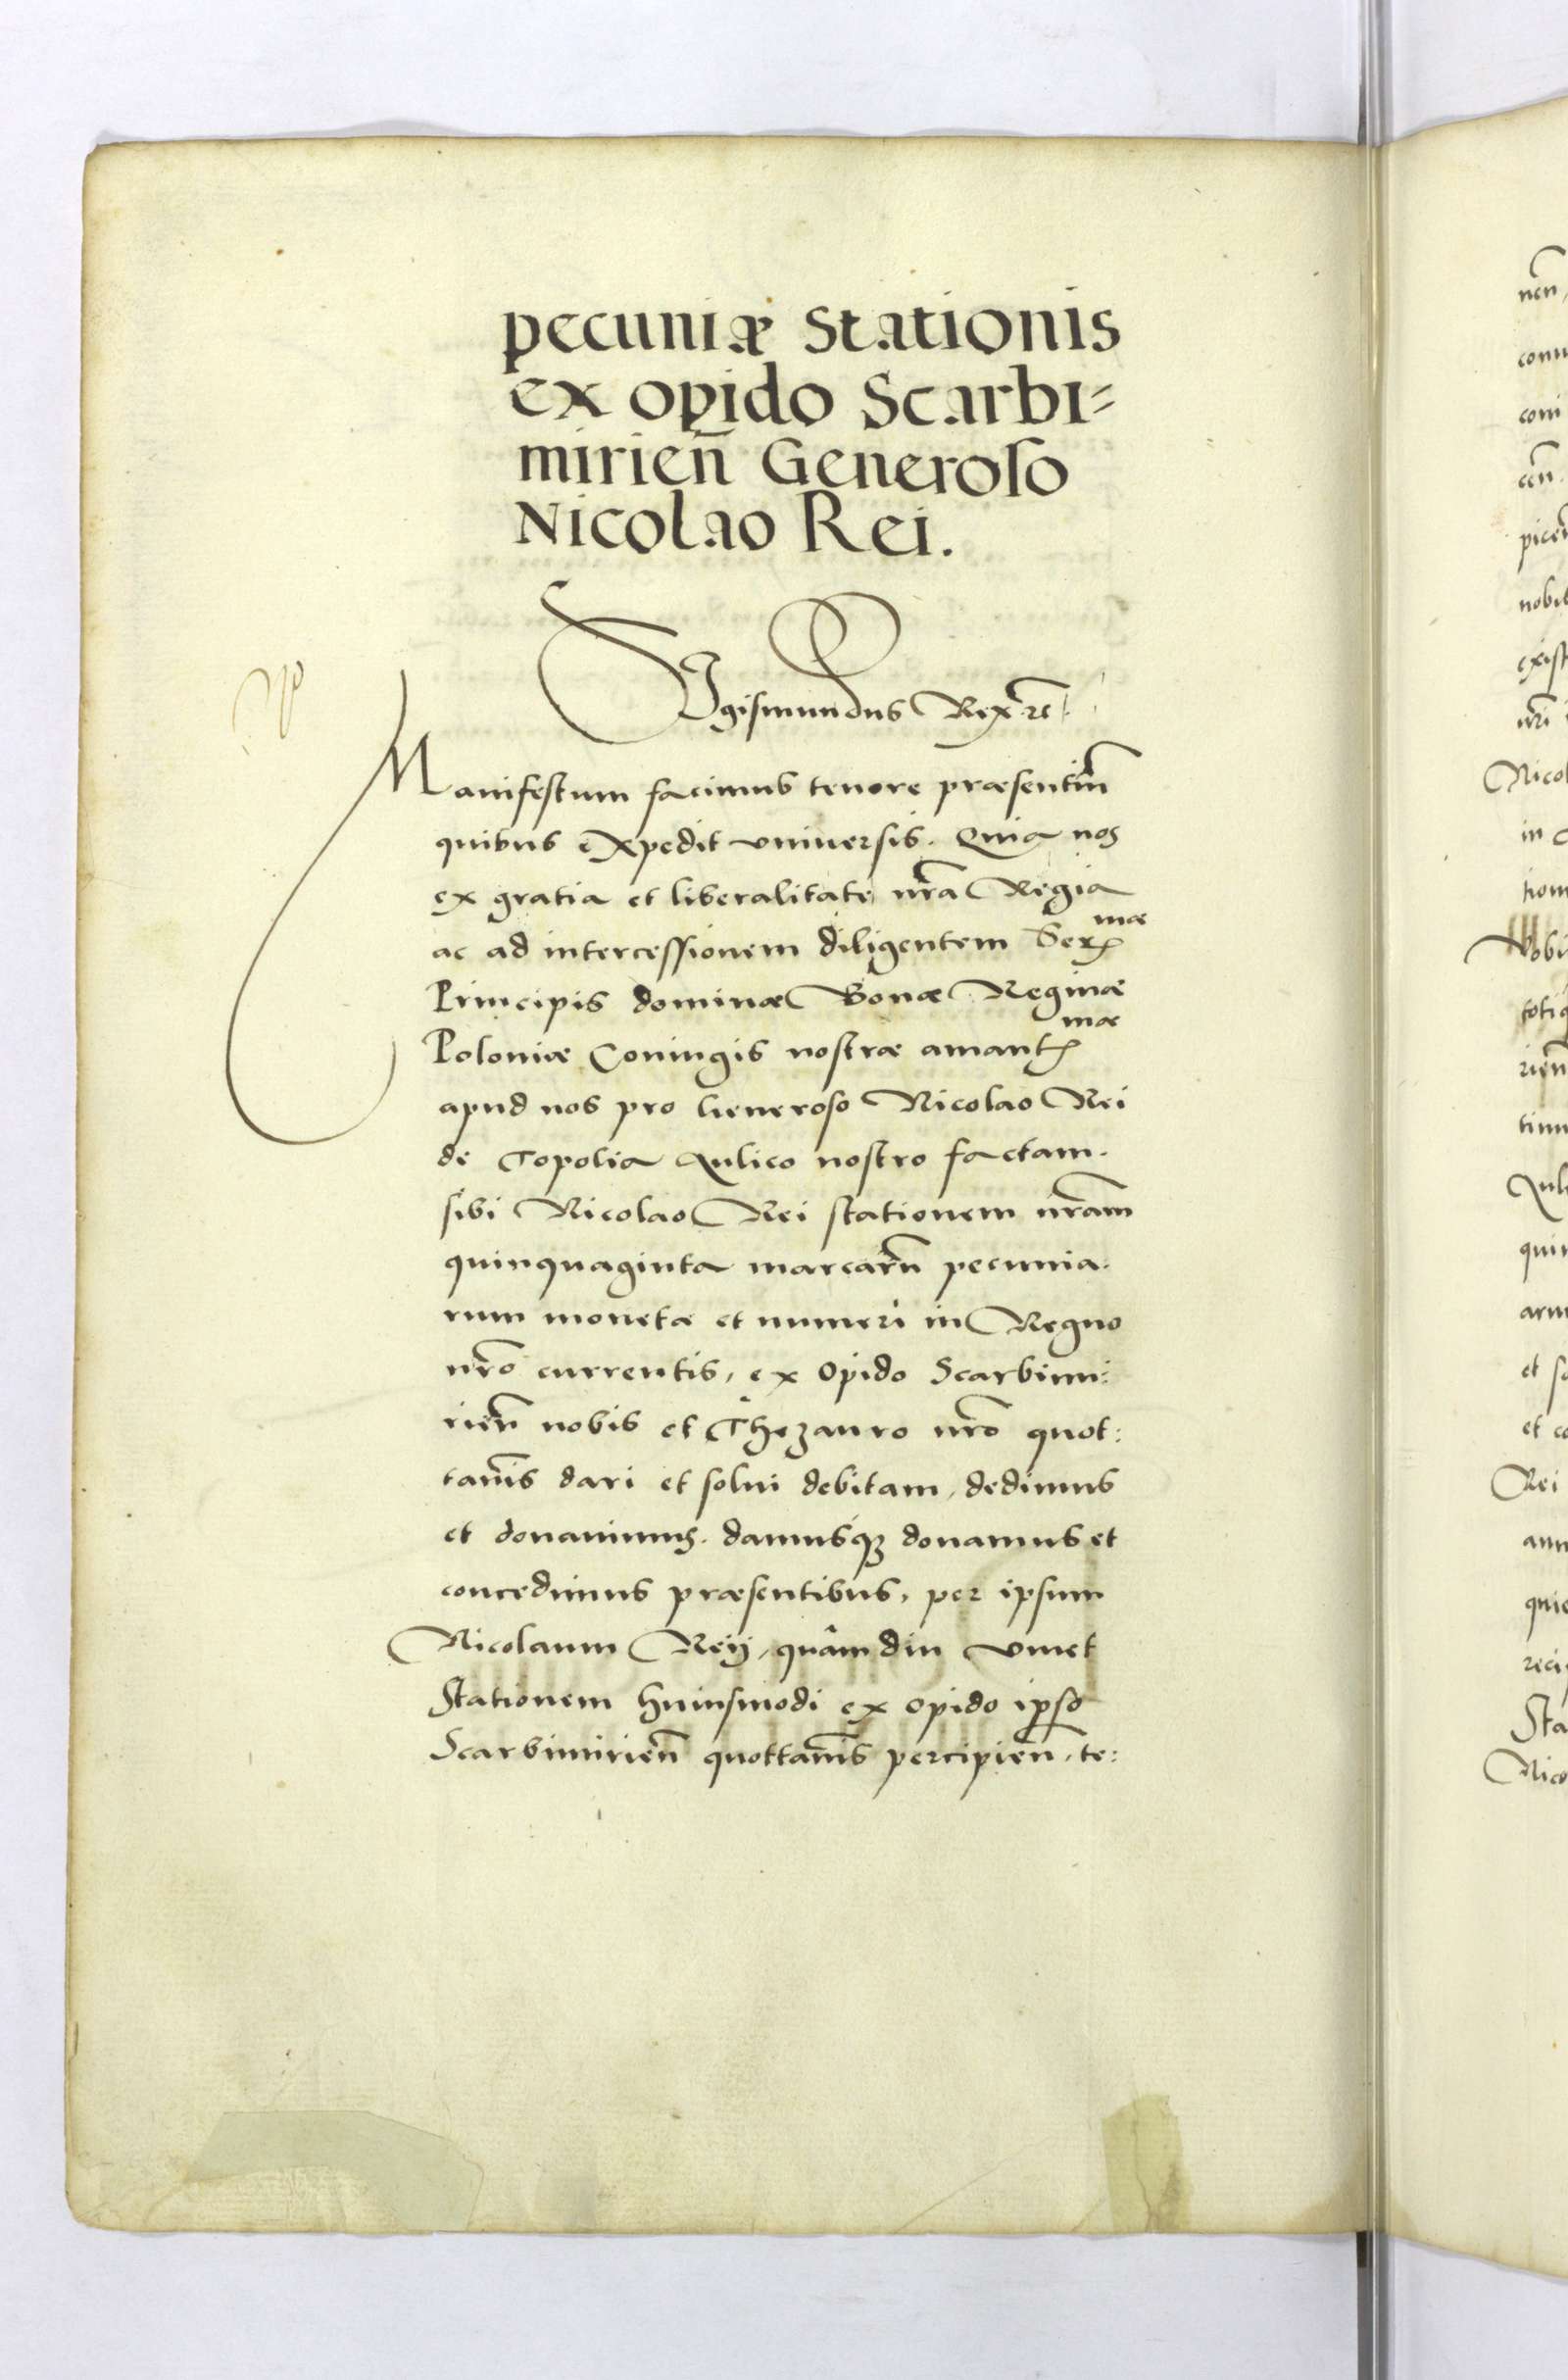 pecuniæ Stationis
ex opido Scarbi=
mirień Generoso
Nicolao Rei.
SIgismundus Rex etc.
Manifestum facimus tenore præsentiũm
quibus expedit vniuersis. Quia nos
ex gratia et liberalitate nr̃a Regia
ac ad intercessionem diligentem Serᵐᵃᵉ
Principis dominæ Bonæ Reginæ
Poloniæ Coniugis nostræ amantᵐᵃᵉ
apud nos pro Generoso Nicolao Rei
de Topolia Aulico nostro factam.
sibi Nicolao Rei stationem nr̃am
quinquaginta marcarũ pecunia:
rum monetæ et numeri in Regno
nr̃o currentis, ex Opido Scarbimi:
rień nobis et Thezauro nr̃o quot:
tanñis dari et solui debitam, dedimus
et donauimus. damusqꝫ donamus et
concedimus præsentibus, per ipsum
Nicolaum Reij, quàmdiu viuet
Stationem huiusmodi ex opido ipso
Scarbimirień quottanñis percipień, te: